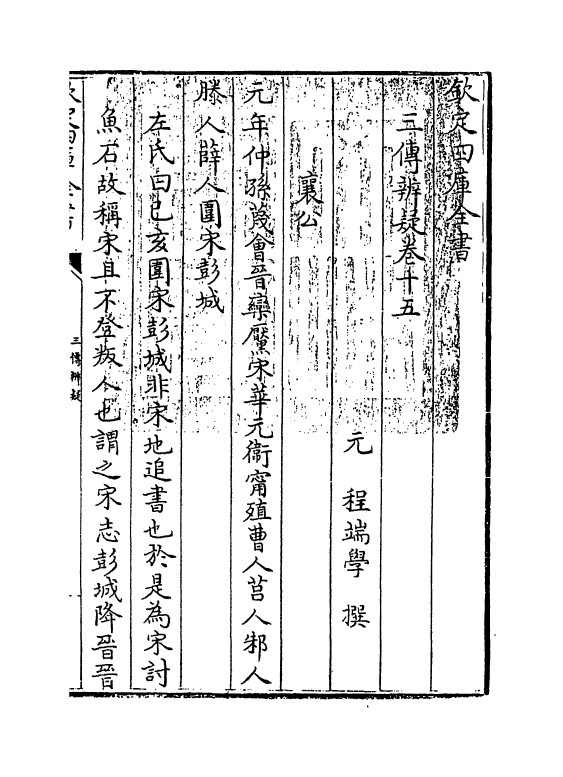 欽定四庫全書
三傳辨疑卷十五
元 程端學 撰
襄公
元年仲孫蔑會晉欒黶宋華元衞甯殖曹人莒人邾人
滕人薛人圍宋彭城
左氏曰己亥圍宋彭城非宋地追書也於是為宋討
魚石故稱宋且不登叛人也謂之宋志彭城降晉晉
三傳辨疑